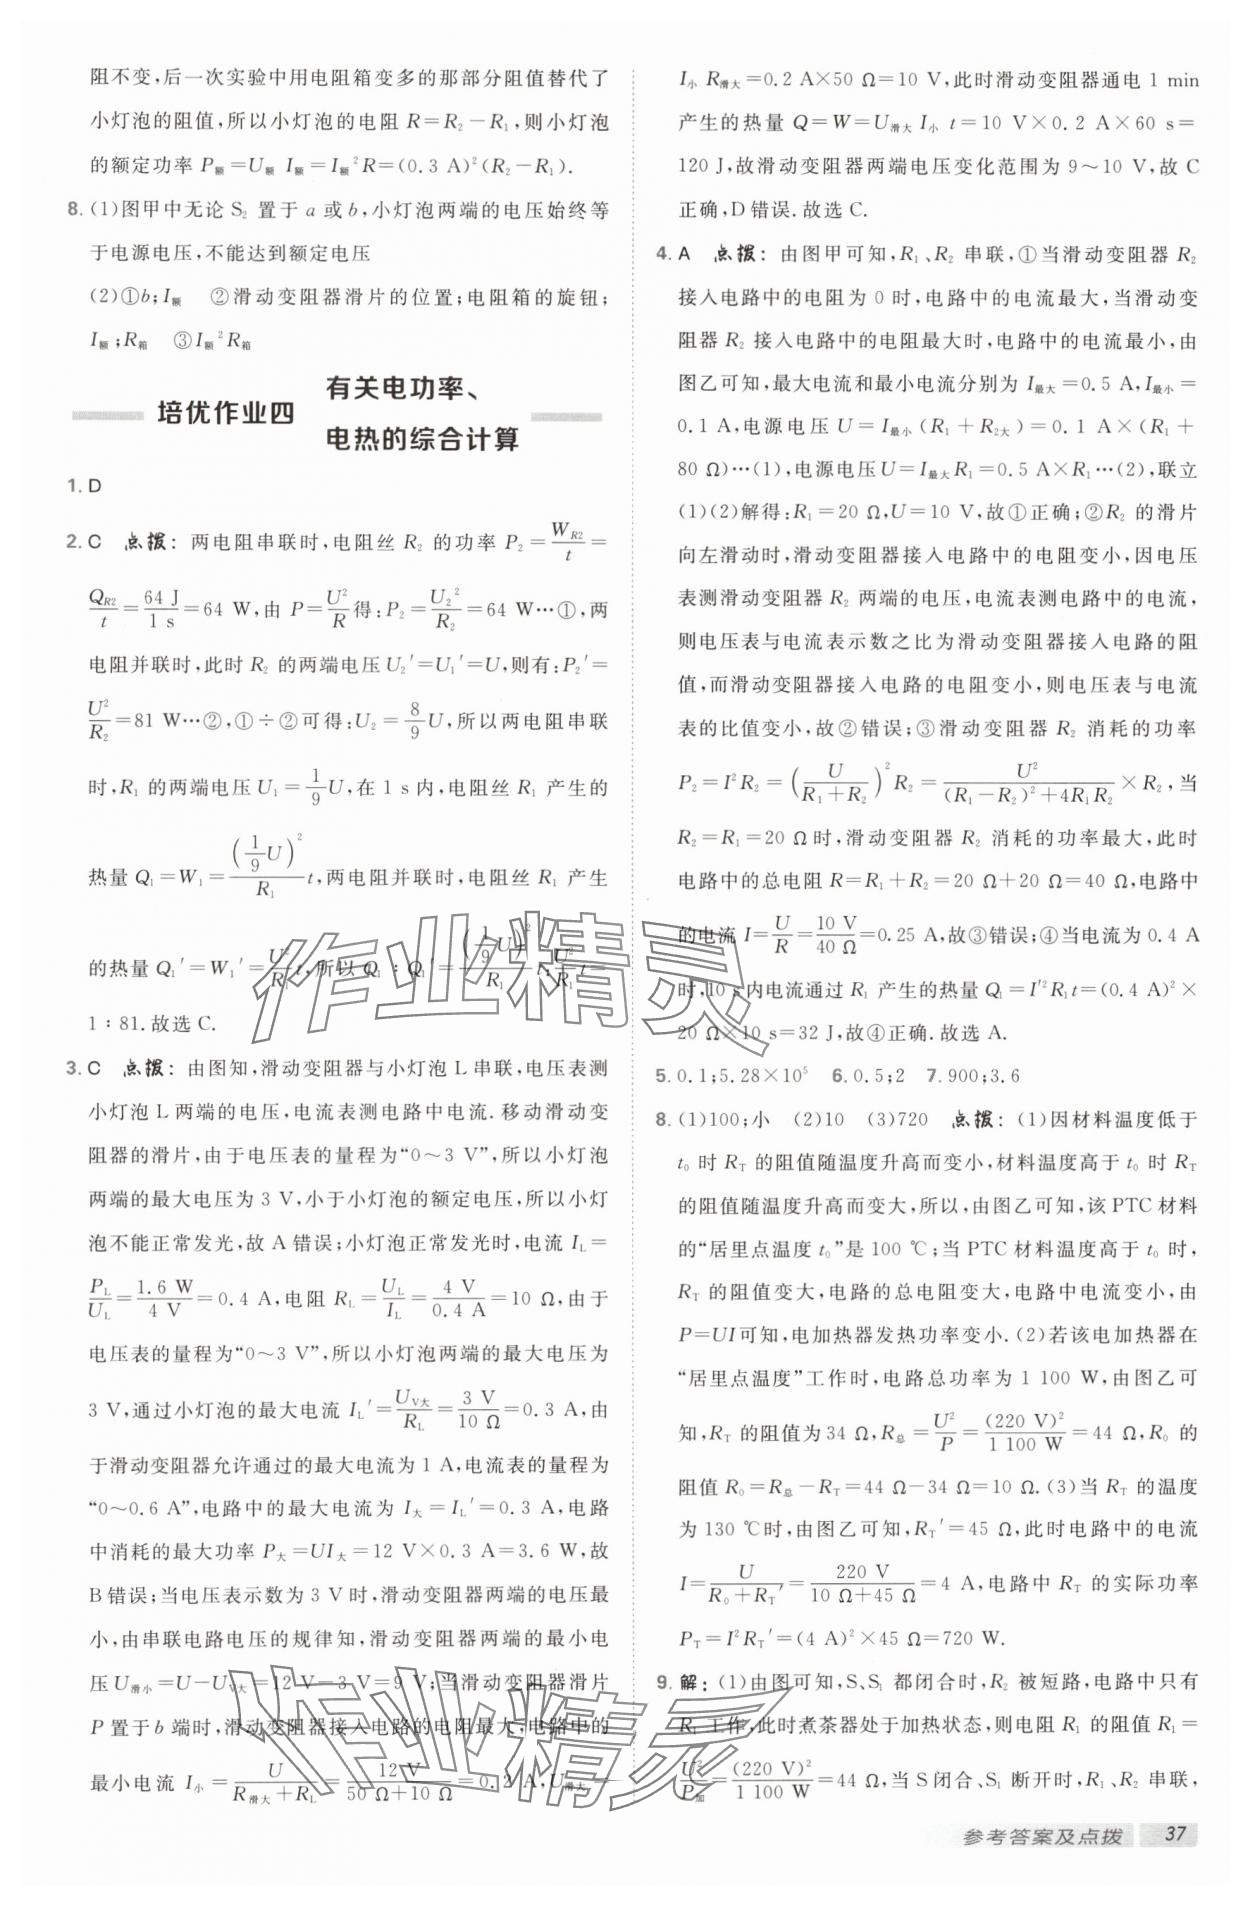 阻不变,后一次实验中用电阻箱变多的那部分阻值替代了
小灯泡的阻值,所以小灯泡的电阻 R=R₂-R₁,则小灯泡
的额定功率 P额=U额 I额=I额²R=(0.3 A)²(R₂-R₁).
8. (1)图甲中无论 S₂ 置于 a 或 b,小灯泡两端的电压始终等
于电源电压,不能达到额定电压
(2)①b;I额 ②滑动变阻器滑片的位置;电阻箱的旋钮;
I额;R箱 ③I额²R箱
培优作业四 有关电功率、
电热的综合计算
1. D
2. C 点拨:两电阻串联时,电阻丝 R₂ 的功率 P₂=W_R2/t=
Q_R2/t=64 J/1 s=64 W,由 P=U²/R得:P₂=U₂²/R₂=64 W…①,两
电阻并联时,此时 R₂ 的两端电压 U₂′=U₁′=U,则有:P₂′=
U²/R₂=81 W…②,①÷②可得:U₂=8/9U,所以两电阻串联
时,R₁ 的两端电压 U₁=1/9U,在 1 s 内,电阻丝 R₁ 产生的
热量 Q₁=W₁=(1/9U)²/R₁ t,两电阻并联时,电阻丝 R₁ 产生
的热量 Q₁′=W₁′=U²/R₁ t,所以 Q₁∶Q₁′=(1/9U)²/R₁ t∶U²/R₁ t=
1∶81.故选 C.
3. C 点拨:由图知,滑动变阻器与小灯泡 L 串联,电压表测
小灯泡 L 两端的电压,电流表测电路中电流.移动滑动变
阻器的滑片,由于电压表的量程为“0～3 V”,所以小灯泡
两端的最大电压为 3 V,小于小灯泡的额定电压,所以小灯
泡不能正常发光,故 A 错误;小灯泡正常发光时,电流 I_L=
P_L/U_L=1.6 W/4 V=0.4 A,电阻 R_L=U_L/I_L=4 V/0.4 A=10 Ω,由于
电压表的量程为“0～3 V”,所以小灯泡两端的最大电压为
3 V,通过小灯泡的最大电流 I_L′=U_V大/R_L=3 V/10 Ω=0.3 A,由
于滑动变阻器允许通过的最大电流为 1 A,电流表的量程为
“0～0.6 A”,电路中的最大电流为 I大=I_L′=0.3 A,电路
中消耗的最大功率 P大=UI大=12 V×0.3 A=3.6 W,故
B 错误;当电压表示数为 3 V 时,滑动变阻器两端的电压最
小,由串联电路电压的规律知,滑动变阻器两端的最小电
压 U滑小=U-U_V大=12 V-3 V=9 V;当滑动变阻器滑片
P 置于 b 端时,滑动变阻器接入电路的电阻最大,电路中的
最小电流 I小=U/(R滑大+R_L)=12 V/(50 Ω+10 Ω)=0.2 A,U滑大=
I小 R滑大=0.2 A×50 Ω=10 V,此时滑动变阻器通电 1 min
产生的热量 Q=W=U滑大 I小 t=10 V×0.2 A×60 s=
120 J,故滑动变阻器两端电压变化范围为 9～10 V,故 C
正确,D 错误.故选 C.
4. A 点拨:由图甲可知,R₁、R₂ 串联,①当滑动变阻器 R₂
接入电路中的电阻为 0 时,电路中的电流最大,当滑动变
阻器 R₂ 接入电路中的电阻最大时,电路中的电流最小,由
图乙可知,最大电流和最小电流分别为 I最大=0.5 A,I最小=
0.1 A,电源电压 U=I最小(R₁+R₂大)=0.1 A×(R₁+
80 Ω)…(1),电源电压 U=I最大R₁=0.5 A×R₁…(2),联立
(1)(2)解得:R₁=20 Ω,U=10 V,故①正确;②R₂ 的滑片
向左滑动时,滑动变阻器接入电路中的电阻变小,因电压
表测滑动变阻器 R₂ 两端的电压,电流表测电路中的电流,
则电压表与电流表示数之比为滑动变阻器接入电路的阻
值,而滑动变阻器接入电路的电阻变小,则电压表与电流
表的比值变小,故②错误;③滑动变阻器 R₂ 消耗的功率
P₂=I²R₂=(U/(R₁+R₂))²R₂=U²/((R₁-R₂)²+4R₁R₂)×R₂,当
R₂=R₁=20 Ω 时,滑动变阻器 R₂ 消耗的功率最大,此时
电路中的总电阻 R=R₁+R₂=20 Ω+20 Ω=40 Ω,电路中
的电流 I=U/R=10 V/40 Ω=0.25 A,故③错误;④当电流为 0.4 A
时,10 s内电流通过 R₁ 产生的热量 Q₁=I′²R₁t=(0.4 A)²×
20 Ω×10 s=32 J,故④正确.故选 A.
5. 0.1;5.28×10⁵ 6. 0.5;2 7. 900;3.6
8. (1)100;小 (2)10 (3)720 点拨:(1)因材料温度低于
t₀ 时 R_T 的阻值随温度升高而变小,材料温度高于 t₀ 时 R_T
的阻值随温度升高而变大,所以,由图乙可知,该 PTC 材料
的“居里点温度 t₀”是 100 ℃;当 PTC 材料温度高于 t₀ 时,
R_T 的阻值变大,电路的总电阻变大,电路中电流变小,由
P=UI可知,电加热器发热功率变小.(2)若该电加热器在
“居里点温度”工作时,电路总功率为 1 100 W,由图乙可
知,R_T 的阻值为 34 Ω,R总=U²/P=(220 V)²/1 100 W=44 Ω,R₀ 的
阻值 R₀=R总-R_T=44 Ω-34 Ω=10 Ω.(3)当 R_T 的温度
为 130 ℃时,由图乙可知,R_T′=45 Ω,此时电路中的电流
I=U/(R₀+R_T′)=220 V/(10 Ω+45 Ω)=4 A,电路中 R_T 的实际功率
P_T=I²R_T′=(4 A)²×45 Ω=720 W.
9. 解:(1)由图可知,S、S₁ 都闭合时,R₂ 被短路,电路中只有
R₁ 工作,此时煮茶器处于加热状态,则电阻 R₁ 的阻值 R₁=
U²/P加=(220 V)²/1 100 W=44 Ω,当 S闭合、S₁ 断开时,R₁、R₂ 串联,
作业精灵
作业精灵
参考答案及点拨 37